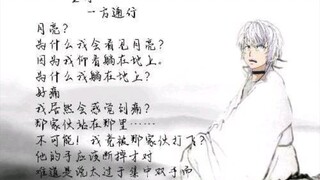 一方通行
月亮？
为什么我会看见月亮？
因为我仰着躺在地上。
为什么我躺在地上？
好痛
我居然会感觉到痛？
那家伙站在那里……
不可能！我竟被那家伙打了？
他的手应该断掉才对
难道是说太过于集中双手而